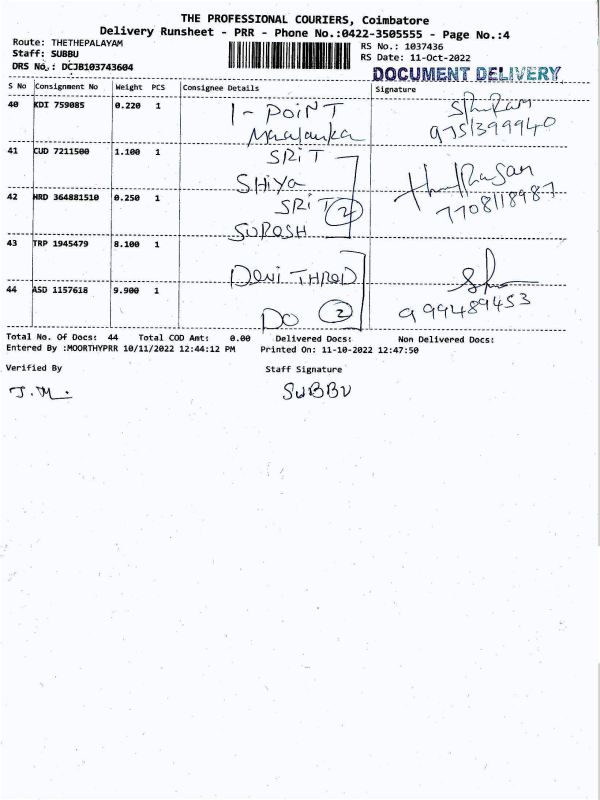 THE PROFESSIONAL COURIERS, Coimbatore
Delivery Runsheet - PRR - Phone No.:0422-3505555 - Page No.:4
Route: THETHEPALAYAM
Staff: SUBBU
DRS No.: DCJB103743604
RS No.: 1037436
RS Date: 11-Oct-2022
DOCUMENT DELIVERY
S No Consignment No Weight PCS Consignee Details Signature
40 KDI 759085 0.220 1 1 - POINT
9751399940
41 CUD 7211500 1.100 1 SRIT
SHIYA
42 HRD 364881510 0.250 1 SRIT 2
7708118987
SUROSH
43 TRP 1945479 8.100 1
DEVI THROD
44 ASD 1157618 9.900 1
DO 2
999489453
Total No. Of Docs: 44 Total COD Amt: 0.00 Delivered Docs: Non Delivered Docs:
Entered By :MOORTHYPRR 10/11/2022 12:44:12 PM Printed On: 11-10-2022 12:47:50
Verified By Staff Signature
J.M. SUBBU